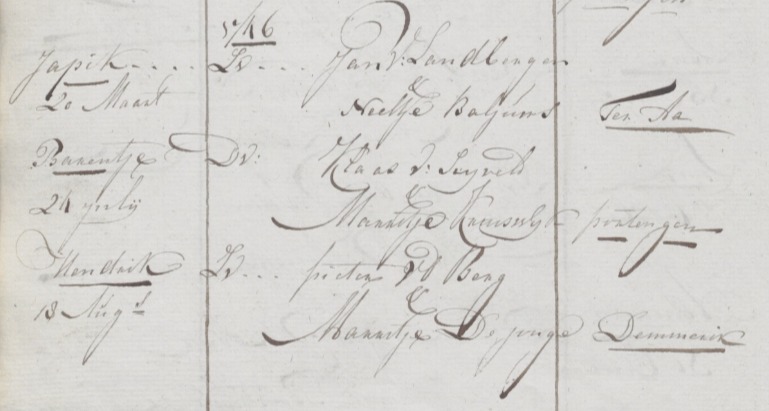 1746
Japik .... Zv ... Jan V: Landbergen
&
20 Maart Neeltje Baljuws Ter Aa
Barentje Dv: Klaas v: Seyveld
&
24 july Marritje Kruiswyk portengen
Hendrik Zv ... pieter v d Berg
&
18 Augt Marritje De jonge Demmerik